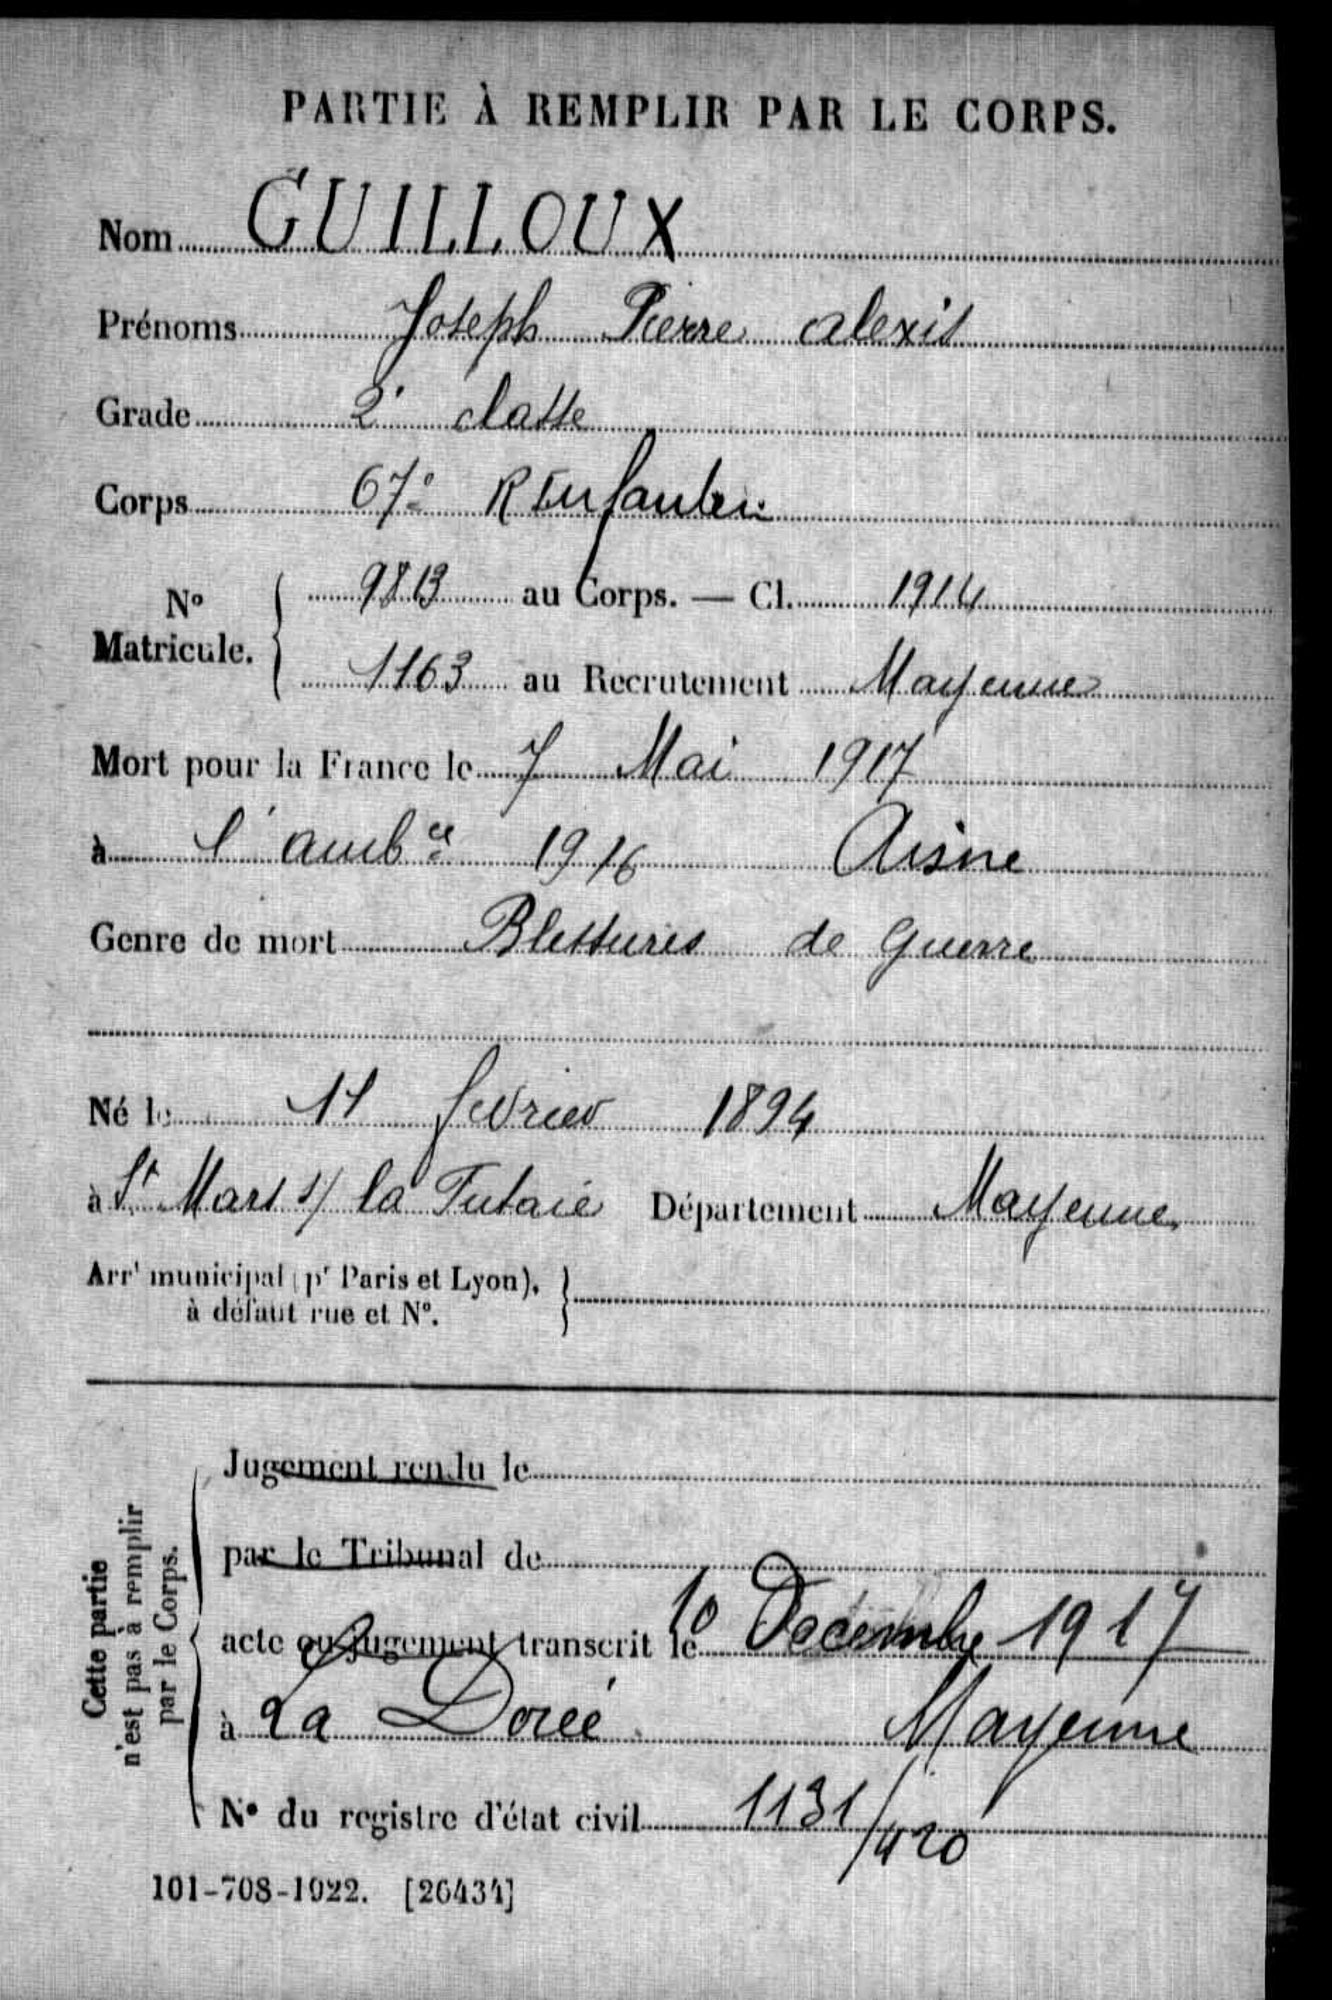 PARTIE À REMPLIR PAR LE CORPS.
Nom GUILLOUX
Prénoms Joseph Pierre Alexis
Grade 2e classe
Corps 67e R Infanterie
No Matricule. 9813 au Corps. — Cl. 1914
1163 au Recrutement Mayenne
Mort pour la France le 7 Mai 1917
à l'ambce 1916 Aisne
Genre de mort Blessures de Guerre
Né le 11 février 1894
à St Mars s/ la Futaie Département Mayenne
Arrt municipal (pr Paris et Lyon),
à défaut rue et No.
Cette partie
n'est pas à remplir
par le Corps.
Jugement rendu le
par le Tribunal de
acte ou jugement transcrit le 10 Décembre 1917
à La Dorée Mayenne
No du registre d'état civil 1131/420
101-708-1922. [26434]